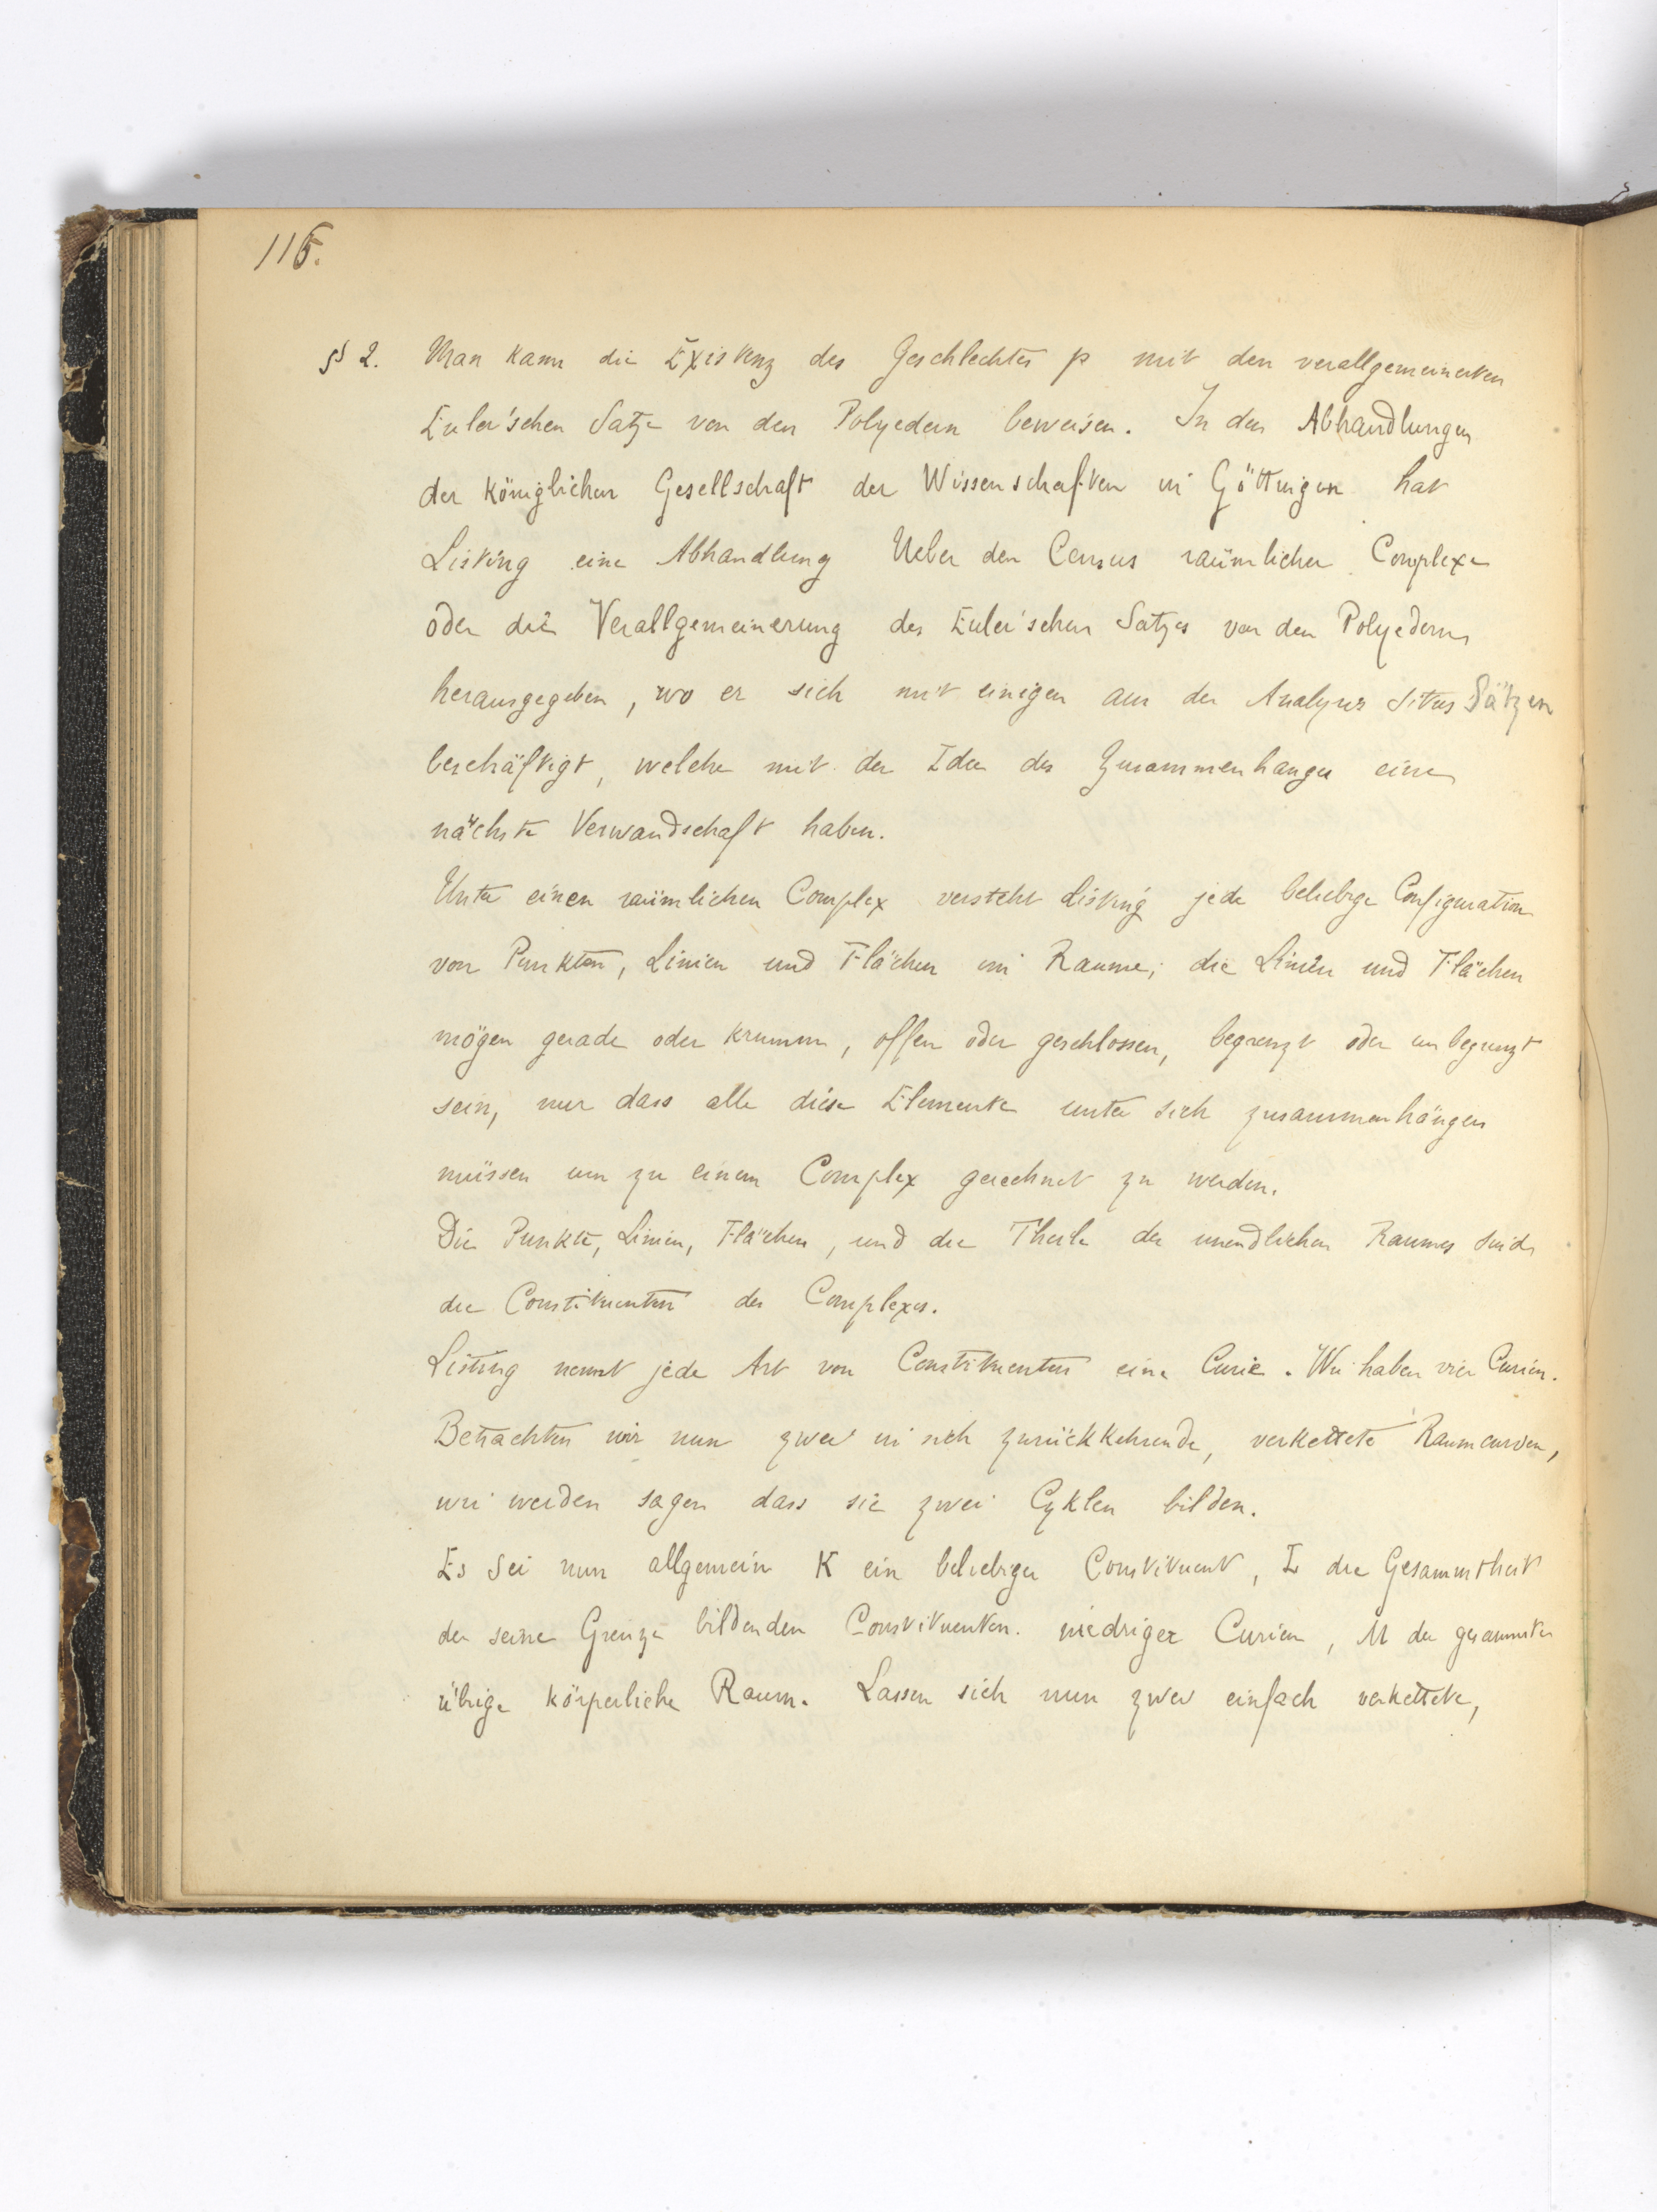 116.
§ 2. Man kann die Existenz des Geschlechtes p mit den verallgemeinerten
Euler'schen Satze von den Polyedern beweisen. In den Abhandlungen
der königlichen Gesellschaft der Wissenschaften in Göttingen hat
Listing eine Abhandlung Ueber den Census räumlicher Complexe
oder die Verallgemeinerung des Euler'schen Satzes von den Polyedern
herausgegeben, wo er sich mit einigen aus der Analysis Situs Sätzen
beschäftigt, welche mit der Idee des Zusammenhanges eine
nächste Verwandschaft haben.
Unter einen räumlichen Complex versteht Listing jede beliebige Configuration
von Punkten, Linien und Flächen im Raume; die Linien und Flächen
mögen gerade oder krumm, offen oder geschlossen, begrenzt oder unbegrenzt
sein, nur dass alle diese Elemente unter sich zusammenhängen
müssen um zu einem Complex gerechnet zu werden.
Die Punkte, Linien, Flächen, und die Theile des unendlichen Raumes sind
die Constituenten des Complexes.
Listing nennt jede Art von Constituenten eine Curie. Wir haben vier Curien.
Betrachten wir nun zwei in sich zurückkehrende, verkettete Raumcurven,
wir werden sagen dass sie zwei Cyklen bilden.
Es sei nun allgemein K ein beliebiger Constituent, L die Gesammtheit
der seine Grenze bildenden Constituenten niedriger Curien, M der gesammte
übrige körperliche Raum. Lassen sich nun zwei einfach verkettete,